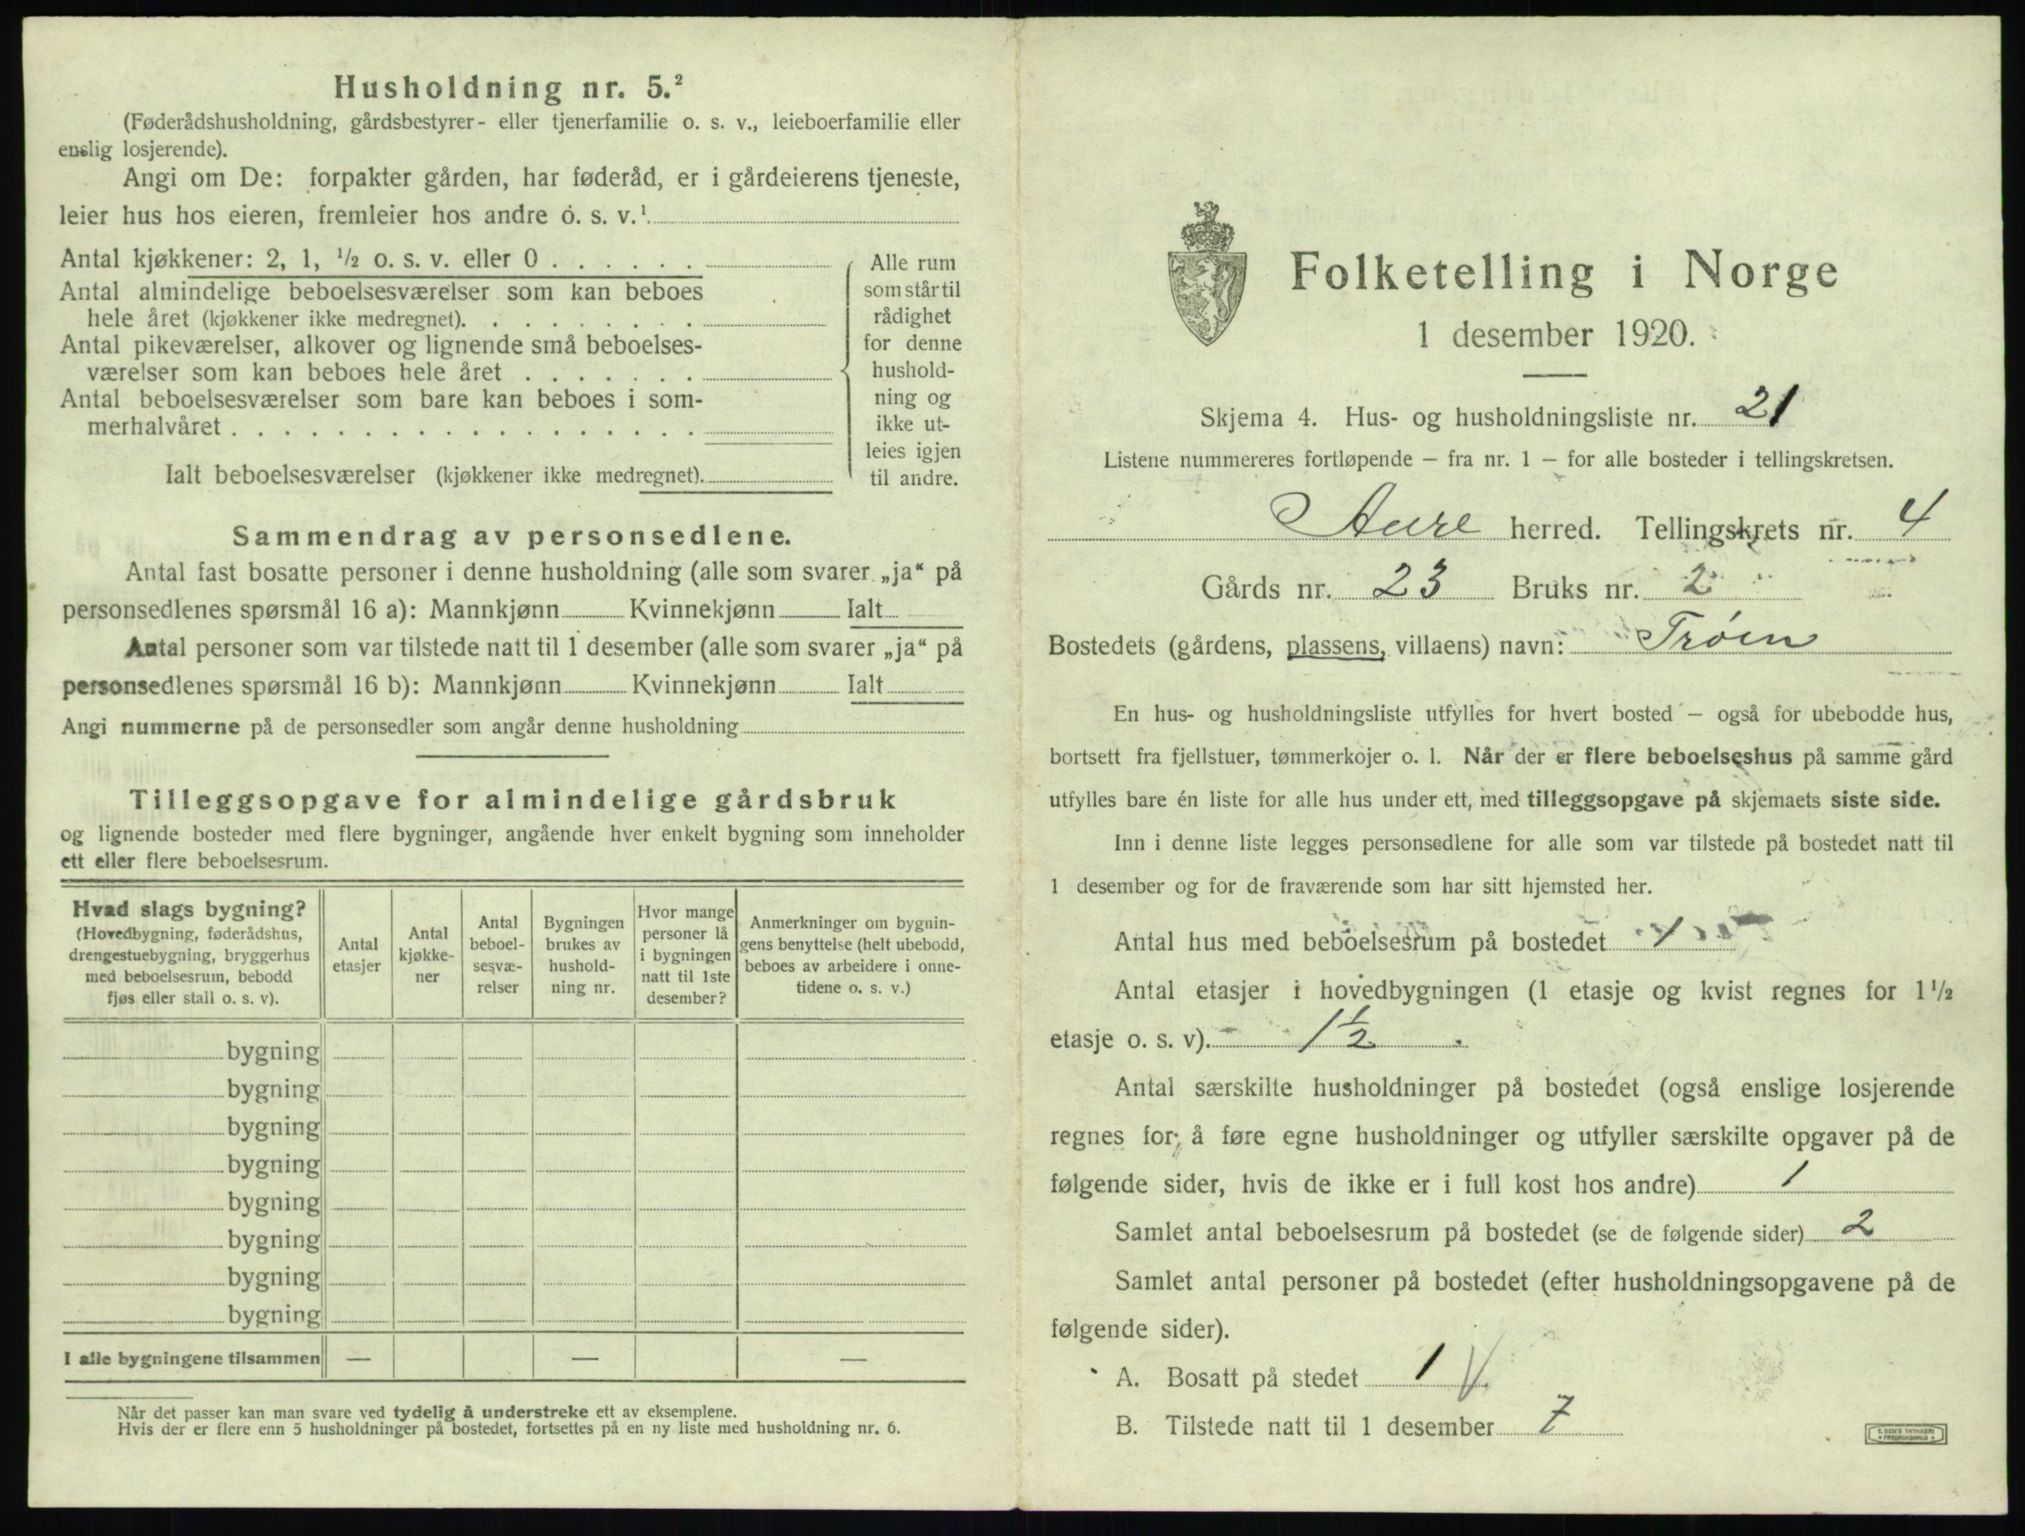 Husholdning nr. 5.²
(Føderådshusholdning, gårdsbestyrer- eller tjenerfamilie o. s. v., leieboerfamilie eller
enslig losjerende).
Angi om De: forpakter gården, har føderåd, er i gårdeierens tjeneste,
leier hus hos eieren, fremleier hos andre o. s. v.¹
Antal kjøkkener: 2, 1, ½ o. s. v. eller 0 . . . . . .
Antal almindelige beboelsesværelser som kan beboes
hele året (kjøkkener ikke medregnet). . . . . . . . .
Antal pikeværelser, alkover og lignende små beboelses-
værelser som kan beboes hele året . . . . . . .
Antal beboelsesværelser som bare kan beboes i som-
merhalvåret . . . . . . . . . . . . . . . . . .
Ialt beboelsesværelser (kjøkkener ikke medregnet).
Alle rum
som står til
rådighet
for denne
hushold-
ning og
ikke ut-
leies igjen
til andre.
Sammendrag av personsedlene.
Antal fast bosatte personer i denne husholdning (alle som svarer „ja“ på
personsedlenes spørsmål 16 a): Mannkjønn Kvinnekjønn Ialt
Antal personer som var tilstede natt til 1 desember (alle som svarer „ja“ på
personsedlenes spørsmål 16 b): Mannkjønn Kvinnekjønn Ialt
Angi nummerne på de personsedler som angår denne husholdning
Tilleggsopgave for almindelige gårdsbruk
og lignende bosteder med flere bygninger, angående hver enkelt bygning som inneholder
ett eller flere beboelsesrum.
Hvad slags bygning?
(Hovedbygning, føderådshus,
drengestuebygning, bryggerhus
med beboelsesrum, bebodd
fjøs eller stall o. s. v).
Antal
etasjer
Antal
kjøkke-
ner
Antal
beboel-
sesvæ-
relser
Bygningen
brukes av
hushold-
ning nr.
Hvor mange
personer lå
i bygningen
natt til 1ste
desember?
Anmerkninger om bygnin-
gens benyttelse (helt ubebodd,
beboes av arbeidere i onne-
tidene o. s. v.)
bygning
bygning
bygning
bygning
bygning
bygning
bygning
bygning
I alle bygningene tilsammen — — —
Når det passer kan man svare ved tydelig å understreke ett av eksemplene.
Hvis der er flere enn 5 husholdninger på bostedet, fortsettes på en ny liste med husholdning nr. 6.
Folketelling i Norge
1 desember 1920.
Skjema 4. Hus- og husholdningsliste nr. 21
Listene nummereres fortløpende — fra nr. 1 — for alle bosteder i tellingskretsen.
Aure herred. Tellingskrets nr. 4
Gårds nr. 23 Bruks nr. 2
Bostedets (gårdens, plassens, villaens) navn: Trøen
En hus- og husholdningsliste utfylles for hvert bosted — også for ubebodde hus,
bortsett fra fjellstuer, tømmerkojer o. l. Når der er flere beboelseshus på samme gård
utfylles bare én liste for alle hus under ett, med tilleggsopgave på skjemaets siste side.
Inn i denne liste legges personsedlene for alle som var tilstede på bostedet natt til
1 desember og for de fraværende som har sitt hjemsted her.
Antal hus med beboelsesrum på bostedet 1
Antal etasjer i hovedbygningen (1 etasje og kvist regnes for 1½
etasje o. s. v). 1½
Antal særskilte husholdninger på bostedet (også enslige losjerende
regnes for å føre egne husholdninger og utfyller særskilte opgaver på de
følgende sider, hvis de ikke er i full kost hos andre) 1
Samlet antal beboelsesrum på bostedet (se de følgende sider) 2
Samlet antal personer på bostedet (efter husholdningsopgavene på de
følgende sider).
A. Bosatt på stedet 1 V
B. Tilstede natt til 1 desember 7